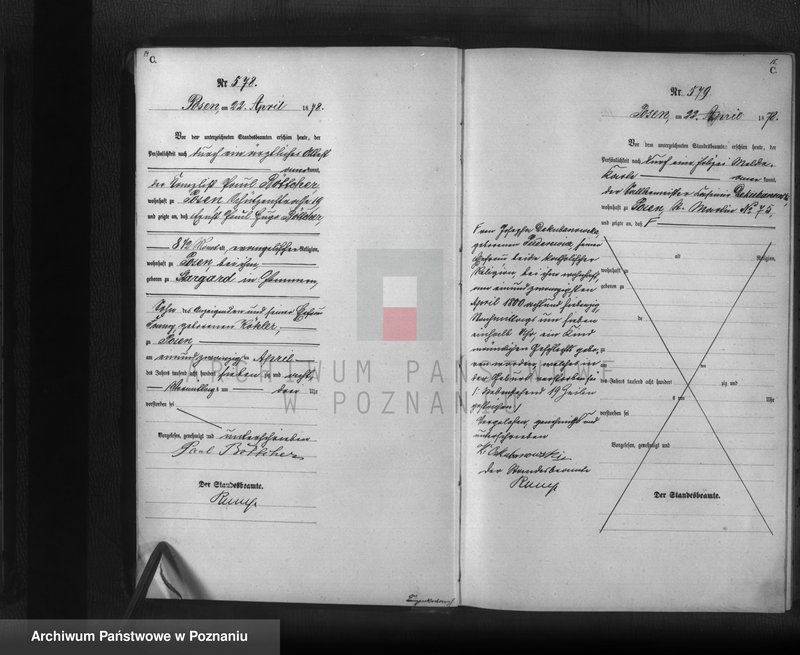 14
C.
Nr 578.
Posen, am 22. April 1878.
Vor dem unterzeichneten Standesbeamten erschien heute, der
Persönlichkeit nach durch ein ärztliches Attest
kannt,
der Kanzlist Paul Böttcher,
wohnhaft zu Posen, Schützenstraße 19
und zeigte an, daß August Paul Hugo Böttcher,
8 1/2 Monat, evangelischer Religion,
wohnhaft zu Posen, bei ihm,
geboren zu Stargard in Pommern,
Sohn des Anzeigenden und seiner Ehefrau
Fanny geborenen Köhler,
zu Posen,
am einundzwanzigsten April
des Jahres tausend acht hundert sieben zig und acht,
Vormittags um drei Uhr
verstorben sei
Vorgelesen, genehmigt und unterschrieben
Paul Böttcher
Der Standesbeamte.
Rump
15.
C.
Nr. 579.
Posen, am 22. April 1878.
Vor dem unterzeichneten Standesbeamten erschien heute, der
Persönlichkeit nach durch eine Polizei Melde-
karte kannt,
der
wohnhaft zu Posen, St. Martin No 75,
und zeigte an, daß
von Josepha
geborenen seiner
Ehefrau beide katholischer
Religion, bei ihm wohnhaft,
am einundzwanzigsten
April 1800 acht und siebenzig,
Nachmittags um sieben
einhalb Uhr, ein Kind
männlichen Geschlechts gebo-
ren worden, welches in
der Geburt verstorben sei
Nebenstehend 19 Zeilen
gestrichen
Vorgelesen, genehmigt und
unterschrieben
Der Standesbeamte
Rump
alt Religion,
wohnhaft zu
geboren zu
zu
am
des Jahres tausend acht hundert zig und
um Uhr
verstorben sei
Vorgelesen, genehmigt und
Der Standesbeamte.
ARCHIWUM PAŃSTWOWE
W POZNANIU
Archiwum Państwowe w Poznaniu